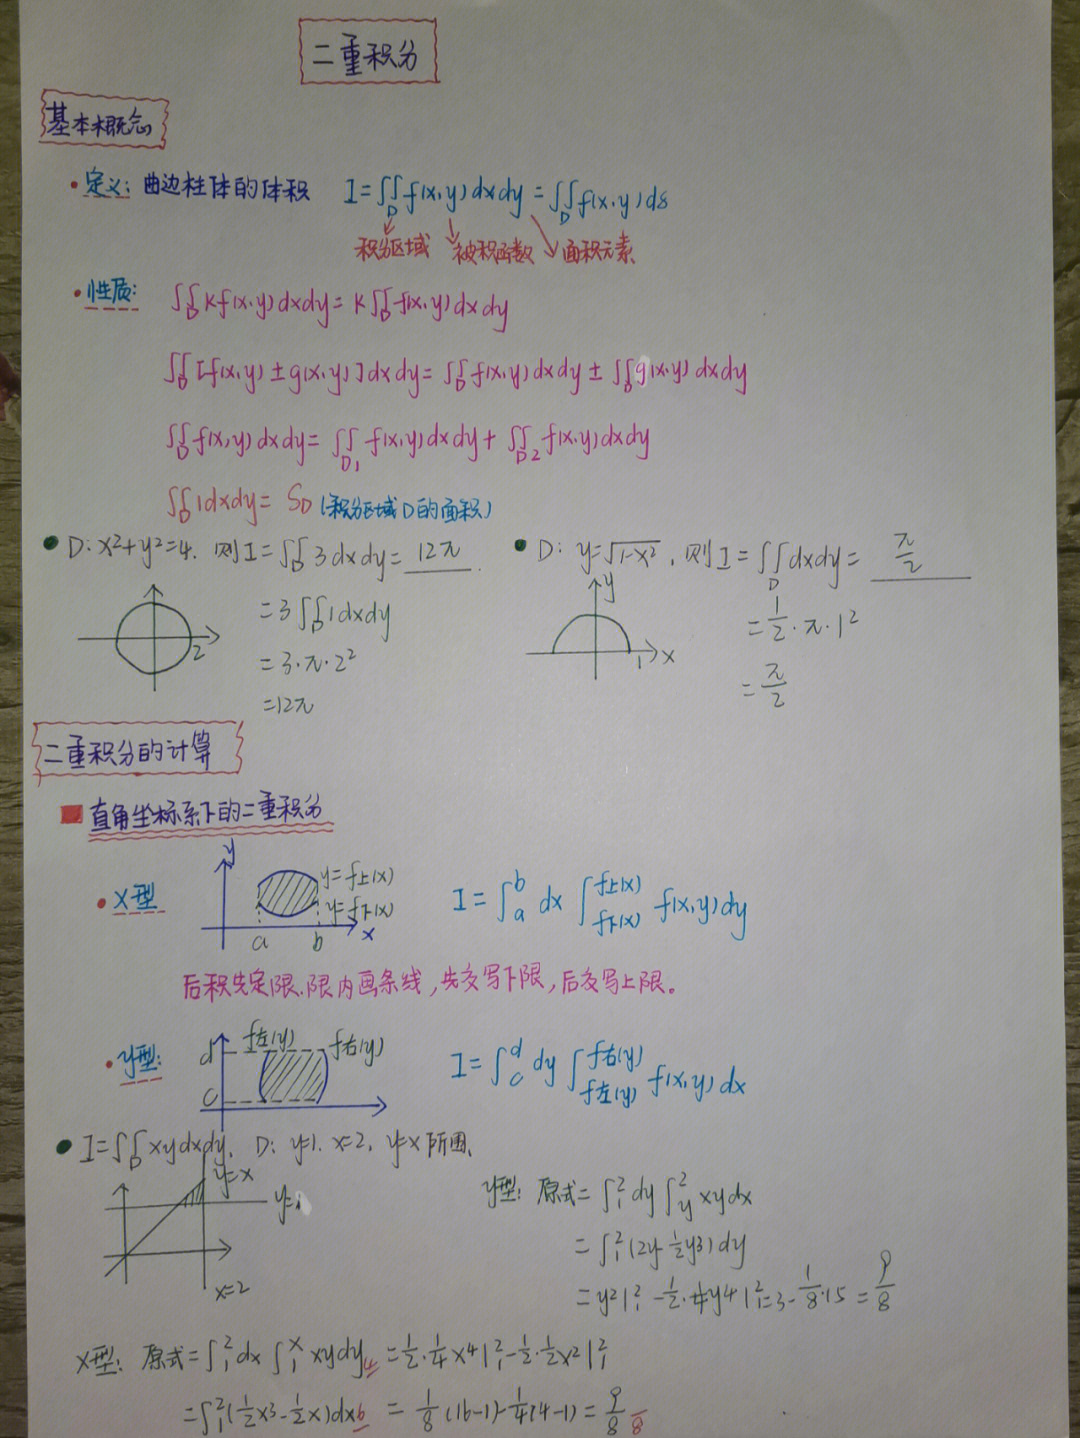 二重积分
基本概念
• 定义: 曲边柱体的体积 I=∬_D f(x,y)dxdy=∬_D f(x,y)dδ
积分区域 被积函数 面积元素
• 性质: ∬_D Kf(x,y)dxdy=K∬_D f(x,y)dxdy
∬_D [f(x,y)±g(x,y)]dxdy=∬_D f(x,y)dxdy±∬_D g(x,y)dxdy
∬_D f(x,y)dxdy=∬_D1 f(x,y)dxdy+∬_D2 f(x,y)dxdy
∬_D 1dxdy=S_D (积分区域D的面积)
• D: x²+y²=4. 则I=∬_D 3dxdy=12π.
=3∬_D 1dxdy
=3·π·2²
=12π
2
• D: y=√(1-x²), 则I=∬_D dxdy=π/2
=1/2·π·1²
=π/2
y
1 x
二重积分的计算
直角坐标系下的二重积分
• X型 I=∫_a^b dx∫_{f下(x)}^{f上(x)} f(x,y)dy
y
y=f上(x)
y=f下(x)
a b x
后积先定限.限内画条线,先交写下限,后交写上限。
• y型: I=∫_c^d dy∫_{f左(y)}^{f右(y)} f(x,y)dx
d f左(y) f右(y)
c
• I=∬_D xydxdy, D: y=1. x=2, y=x所围.
y=x
y=1
x=2
y型: 原式=∫_1^2 dy∫_y^2 xydx
=∫_1^2(2y-1/2y3)dy
=y²|_1^2-1/2·1/4y4|_1^2=3-1/8·15=9/8
X型: 原式=∫_1^2 dx∫_1^x xydy4=1/2·1/4x4|_1^2-1/2·1/2x²|_1^2
=∫_1^2(1/2x3-1/2x)dx6=1/8(16-1)-1/4(4-1)=9/8 8